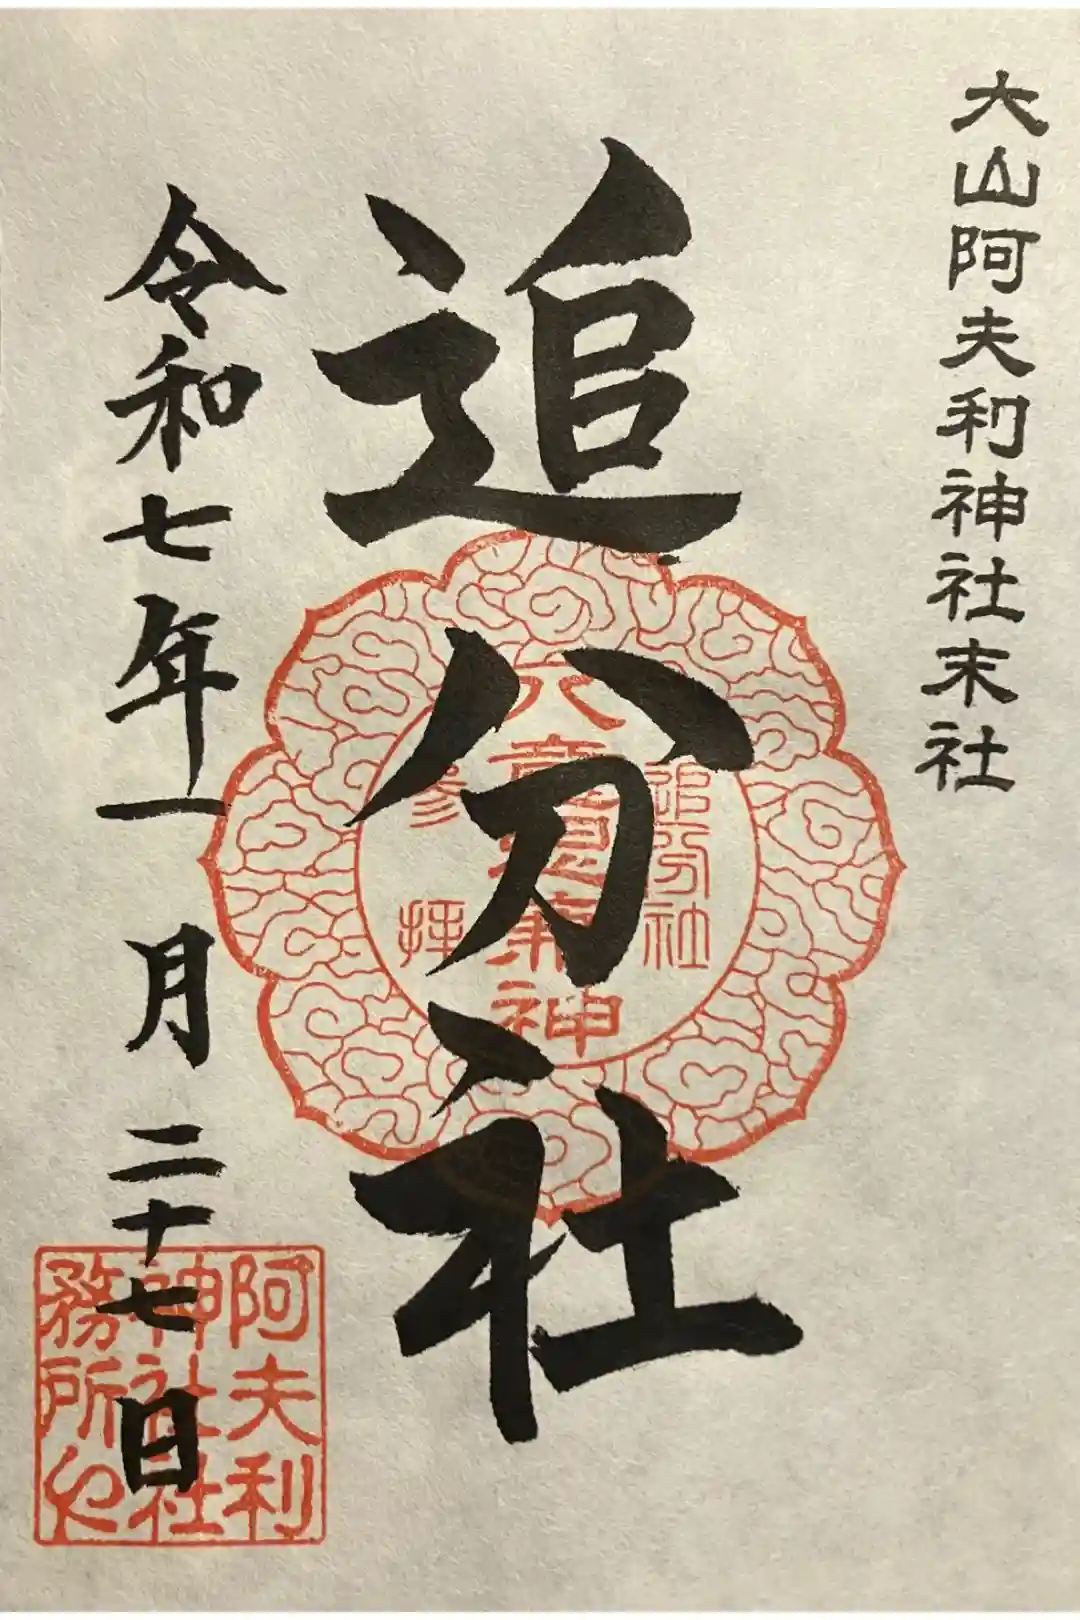 大山阿夫利神社末社
追分社
追分社
八意思兼神
参拝
令和七年一月二十七日
阿夫利
神社社
務所也